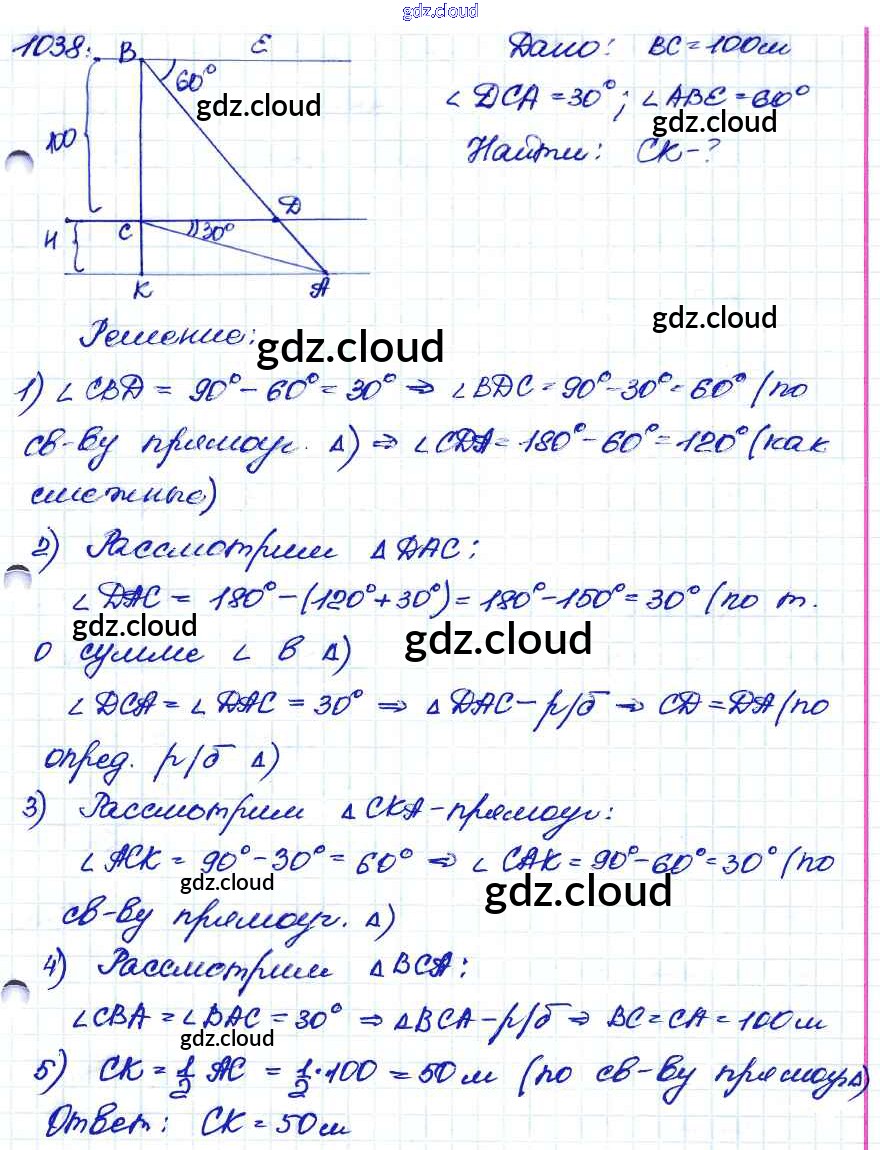 gdz.cloud
1038:
B E
60°
100
H
C 30° D
K A
Дано: BC = 100м
∠DCA = 30°; ∠ABE = 60°
Найти: CK-?
gdz.cloud
gdz.cloud
gdz.cloud
Решение:
gdz.cloud
1) ∠CBD = 90° - 60° = 30° ⇒ ∠BDC = 90° - 30° = 60° (по
св-ву прямоуг. Δ) ⇒ ∠CDA = 180° - 60° = 120° (как
смежные)
2) Рассмотрим ΔDAC:
∠DAC = 180° - (120° + 30°) = 180° - 150° = 30° (по т.
gdz.cloud
gdz.cloud
о сумме ∠ в Δ)
∠DCA = ∠DAC = 30° ⇒ ΔDAC - р/б ⇒ CD = DA (по
опред. р/б Δ)
3) Рассмотрим ΔCKA - прямоуг:
∠ACK = 90° - 30° = 60° ⇒ ∠CAK = 90° - 60° = 30° (по
gdz.cloud
gdz.cloud
св-ву прямоуг. Δ)
4) Рассмотрим ΔBCA:
∠CBA = ∠BAC = 30° ⇒ ΔBCA - р/б ⇒ BC = CA = 100м
gdz.cloud
5) CK = 1/2 AC = 1/2 · 100 = 50м (по св-ву прямоуг Δ)
Ответ: CK = 50м